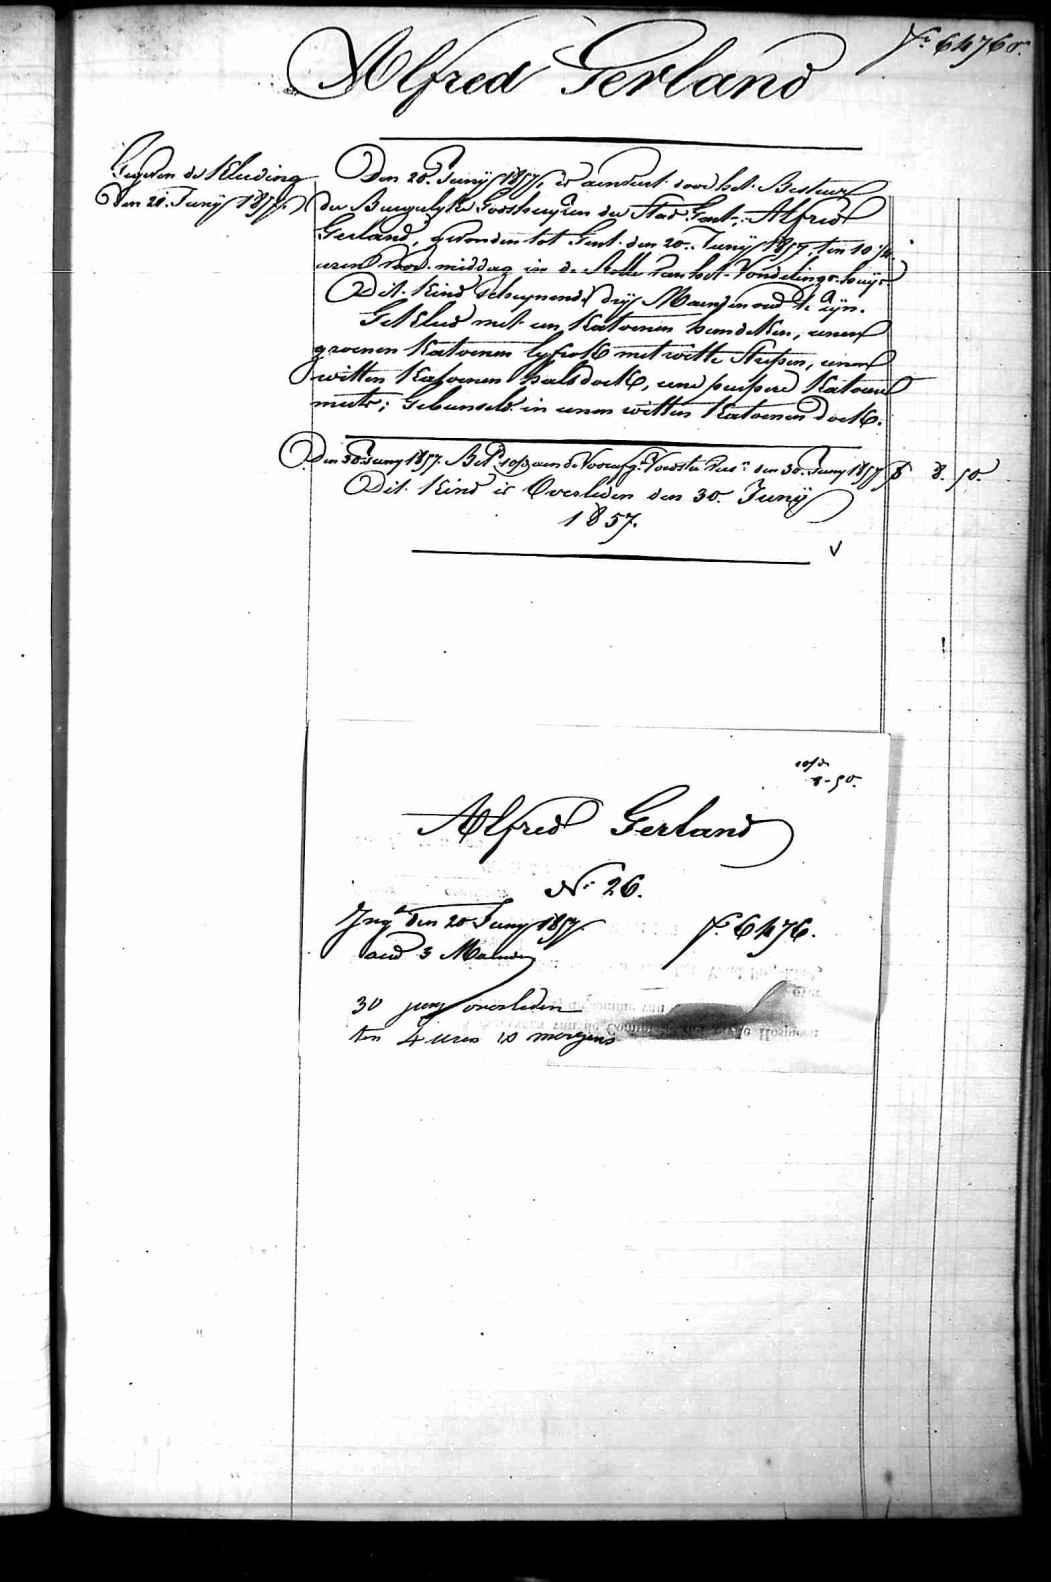 Fo. 6476v.
Alfred Gerland
Gegeven de Kleeding
den 20. Junij 1857.
Den 20. Junij 1857, is aenveert door het Bestuer
der Burgelyke Godshuyzen der Stad Gent, Alfred
Gerland, gevonden tot Gent den 20. Junij 1857, ten 10 3/4
uren voor middag in de Rolle van het Vondelings-huys.
Dit Kind scheynende drij Maenden oud te zijn.
Gekleed met een Katoenen hemdeken, eenen
groenen Katoenen lyfrok met witte Strepen, eenen
witten Katoenen halsdoek, eene purpere Katoene
muts; Gebunseld in eenen witten Katoenen doek.
Den 30. Juny 1857. Bet. 10/d aen de Voorzg. Voedster den 30. Juny 1857 8. 50.
Dit Kind is Overleden den 30. Junij
1857.
10/d
8-50.
Alfred Gerland
No. 26.
Ingt. den 20 Juny 1857. Fo. 6476.
oud 3 Maenden
30 juny overleden
ten 4 uren 's morgens